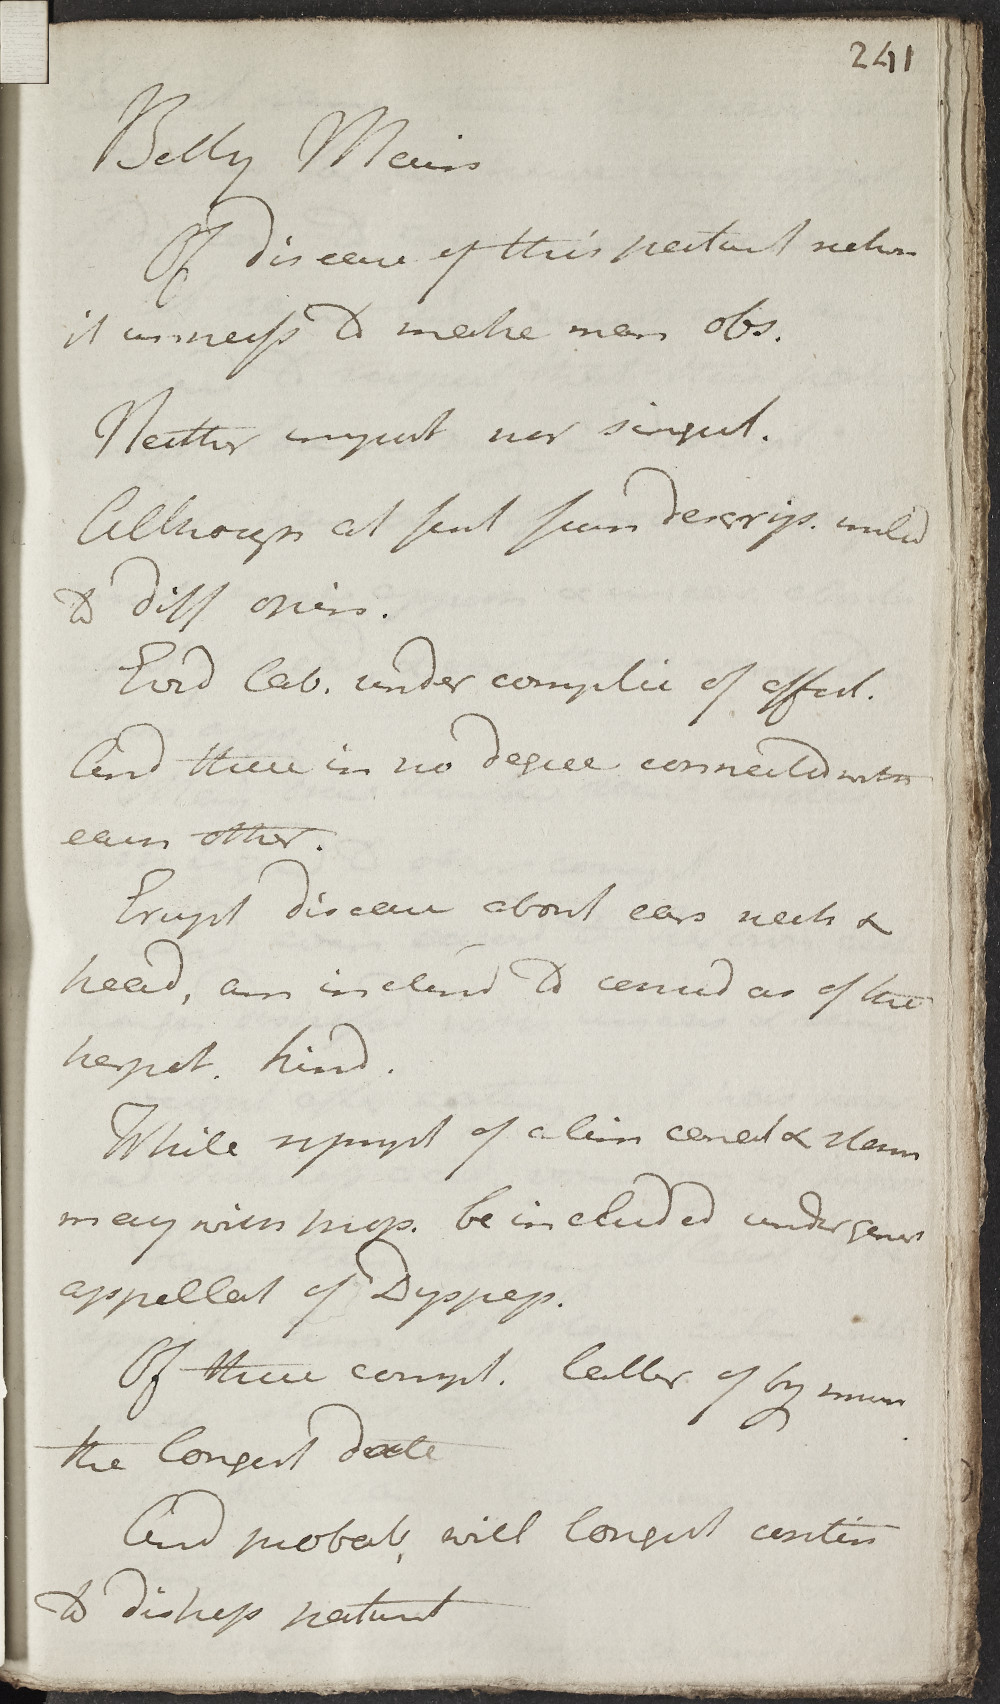 241
Betty Mains
Of disease of this patient
it unnecess to make man obs.
Neither import nor singul.
Although at pnt from descrip.
to diff opins.
Evid lab. under complic of affect.
And these in no degree connected with
each other.
Erupt disease about ears neck &
head, am inclin'd to consid as of the
herpet. kind.
While sympt of alim canal & stom
may with prop. be included under gener
appellat of Dyspep.
Of these compt. latter of by much
the longest date
And probab, will longest contin
to distress patient